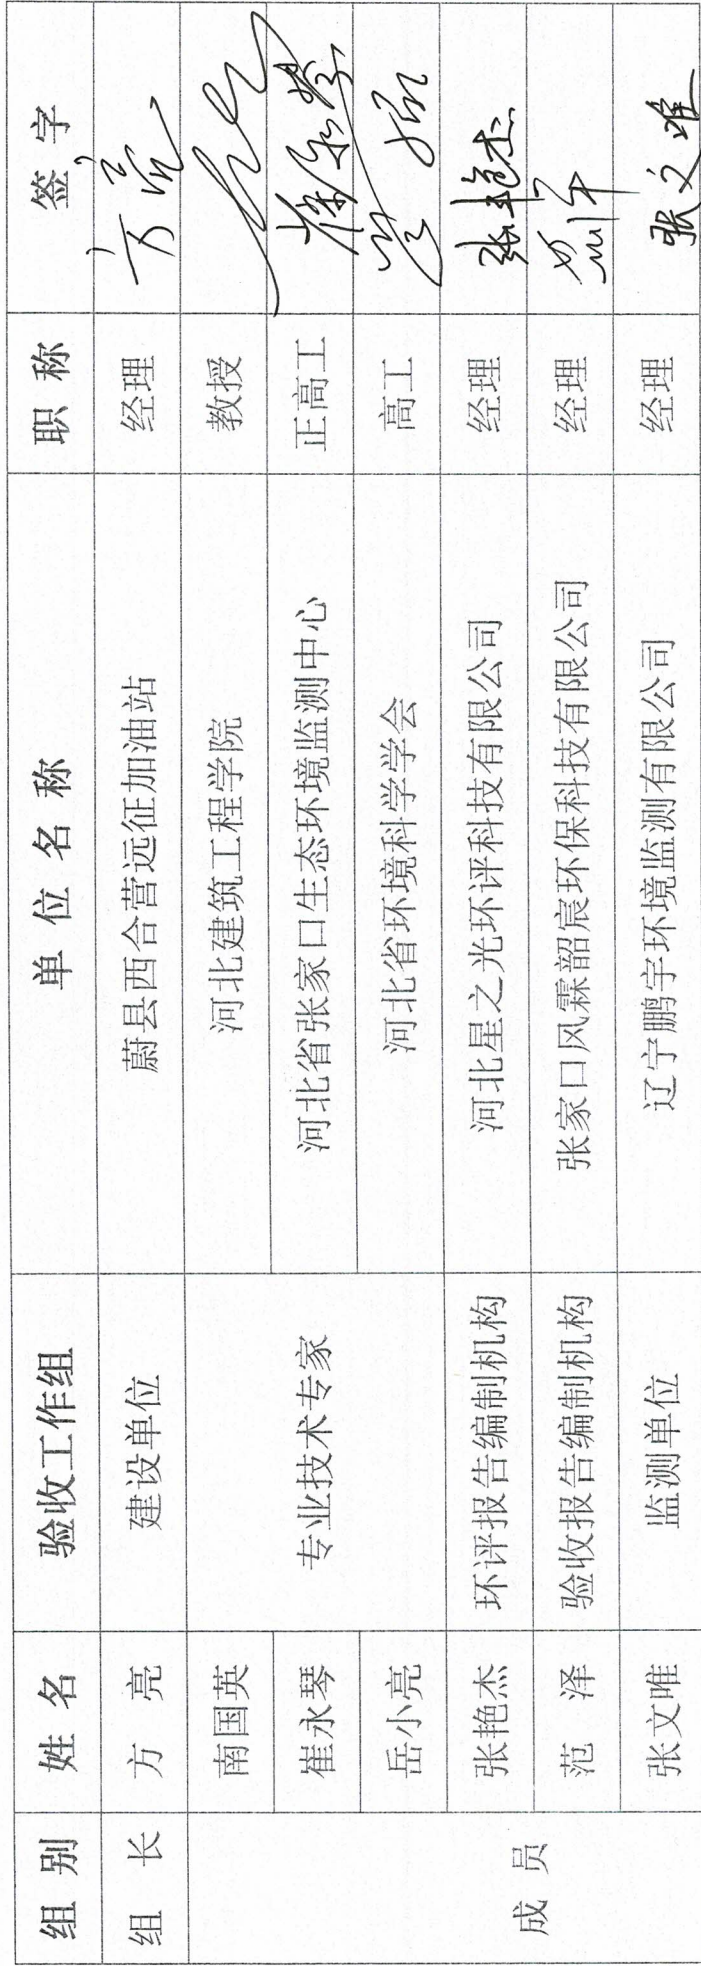 组 别 姓 名 验收工作组 单 位 名 称 职 称 签 字
组 长 方 亮 建设单位 蔚县西合营远征加油站 经理 方亮
成 员 南国英 专业技术专家 河北建筑工程学院 教授
崔永琴 河北省张家口生态环境监测中心 正高工
岳小亮 河北省环境科学学会 高工
张艳杰 环评报告编制机构 河北星之光环评科技有限公司 经理 张艳杰
范 泽 验收报告编制机构 张家口风霖韶宸环保科技有限公司 经理
张文唯 监测单位 辽宁鹏宇环境监测有限公司 经理 张文唯